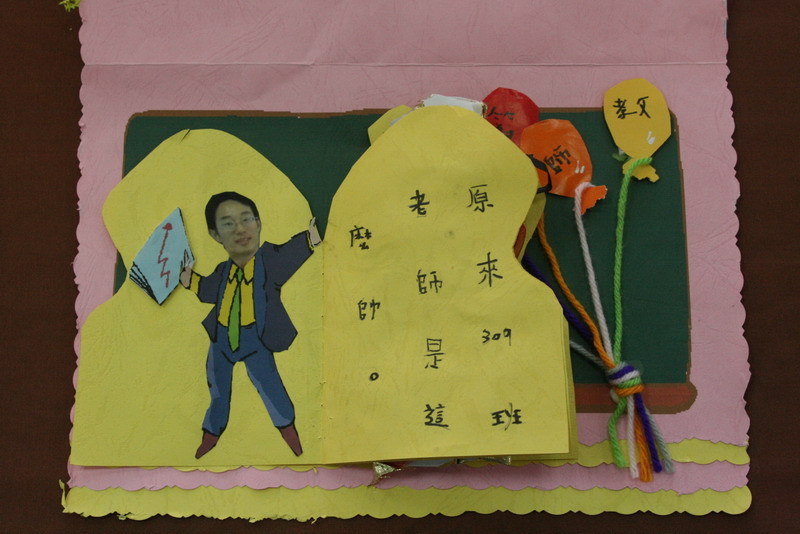 原來309班
老師是這
麼帥。
教
師